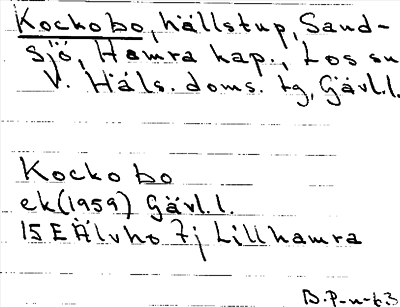 Kockobo, hällstup, Sand-
sjö, Hamra kap., Los sn
V. Häls. doms. tg, Gävl.l.
Kockobo
ek(1959) Gävl.l.
15E Älvho 7j Lillhamra
B.P-n-63